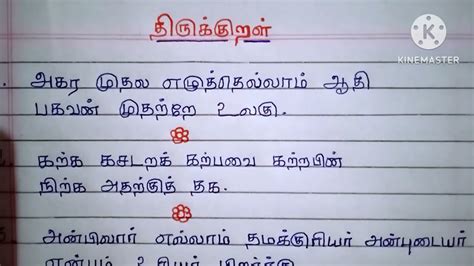 திருக்குறள்
KINEMASTER
அகர முதல எழுத்தெல்லாம் ஆதி
பகவன் முதற்றே உலகு.
கற்க கசடறக் கற்பவை கற்றபின்
நிற்க அதற்குத் தக.
அன்பிலார் எல்லாம் தமக்குரியர் அன்புடையர்
என்பும் உரியர் பிறர்க்கு